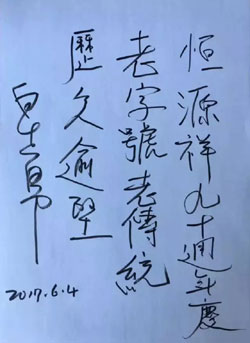 恒源祥九十週年慶
老字號老傳統
歷久逾堅
2017.6.4